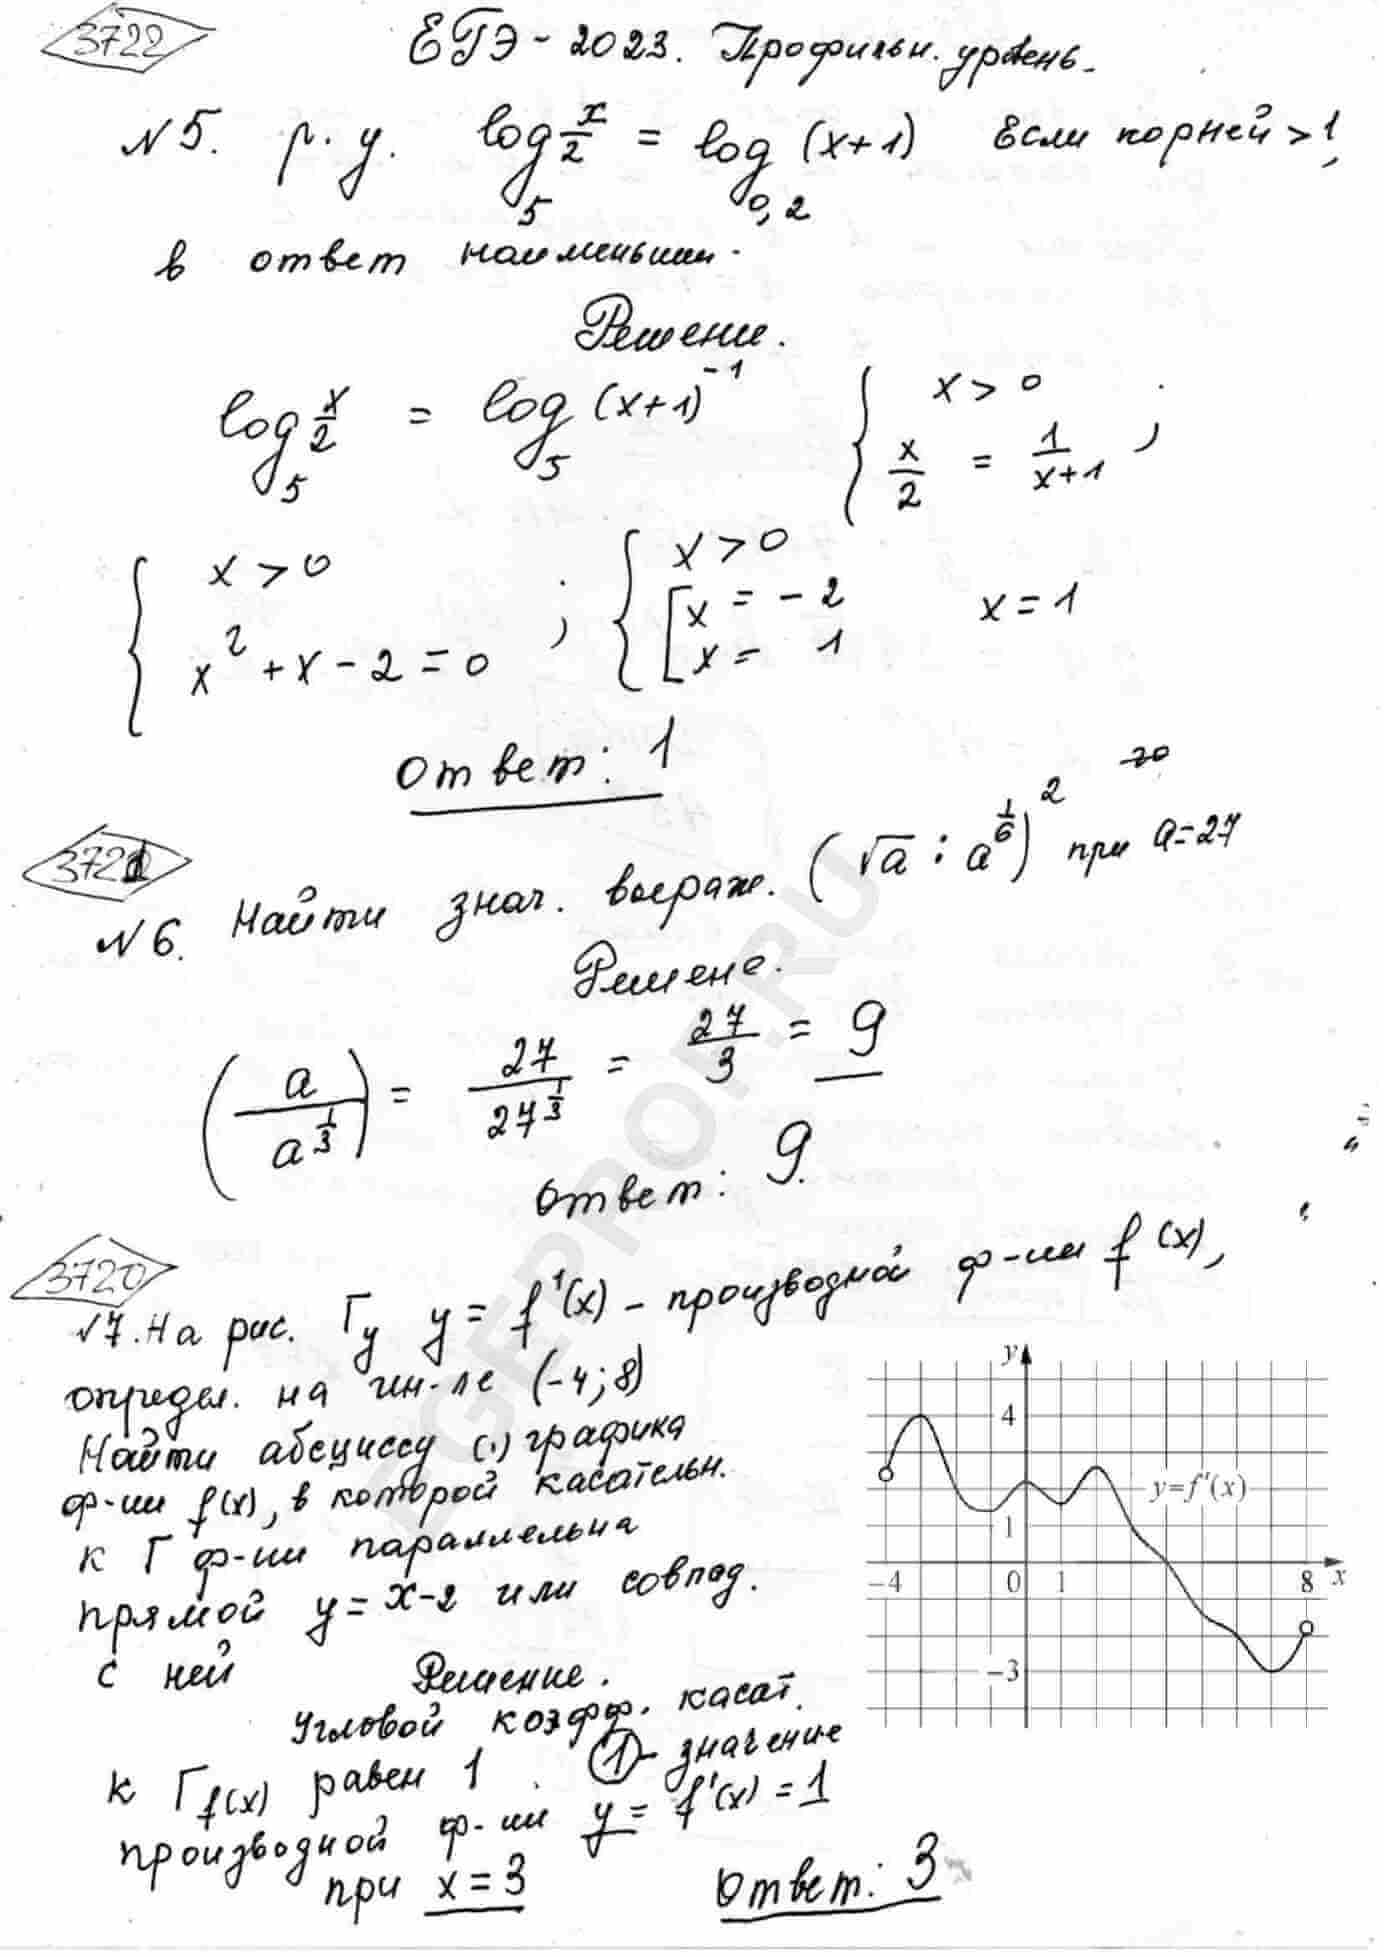 3722
ЕГЭ - 2023. Профильн. уровень.
№5. р. у. log_5 x/2 = log_0,2 (x+1) Если корней > 1,
в ответ наименьши.
Решение.
log_5 x/2 = log_5 (x+1)^-1 { x > 0
x/2 = 1/(x+1) ;
{ x > 0
x² + x - 2 = 0 ; { x > 0
[ x = -2
x = 1 x = 1
Ответ: 1
3721
№6. Найти знач. выраж. (√a : a^1/6)² при a=27
Решене.
(a / a^1/3) = 27 / 27^1/3 = 27/3 = 9
Ответ: 9.
3720
№7. На рис. Гу y = f'(x) - производной ф-ии f(x),
определ. на ин-ле (-4; 8)
Найти абсциссу (·) графика
ф-ии f(x), в которой касательн.
к Г ф-ии параллельна
прямой y = x-2 или совпад.
с ней
Решение.
Угловой коэфф. касат.
к Г f(x) равен 1. 1 - значение
производной ф-ии y = f'(x) = 1
при x = 3
Ответ: 3
y
4
y=f'(x)
1
-4 0 1 8 x
-3
EGEPROF.RU